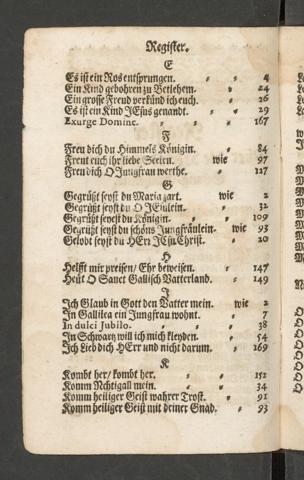 Register.
E
Es ist ein Ros entsprungen. 4
Ein Kind gebohren zu Betlehem. 24
Ein grosse Freud verkünd ich euch. 26
Es ist ein Kind JEsus genandt. 29
Exurge Domine. 167
F
Freu dich du Himmels Königin. 84
Freut euch ihr liebe Seelen. wie 97
Freu dich O Jungfrau werthe. 127
G
Gegrüßt seyst du Maria zart. wie 2
Gegrüßt seyst du O JEsulein. 32
Gegrüßt seyst du Königin. 109
Gegrüßt seyst du schöns Jungfräulein. wie 93
Gelobt seyst du HErr JEsu Christ. 20
H
Helfft mir preisen/ Ehr beweisen. 147
Heut O Sanct Gallisch Vatterland. 149
J
Ich Glaub in Gott den Vatter mein. wie 2
In Gallilea ein Jungfrau wohnt. 7
In dulci Jubilo. 38
In Schwartz will ich mich kleyden. 54
Ich Lieb dich HErr und nicht darum. 169
K
Kombt her/ kombt her. 152
Komm Nchtigall mein. 34
Komm heiliger Geist wahrer Trost. 91
Komm heiliger Geist mit deiner Gnad. 93